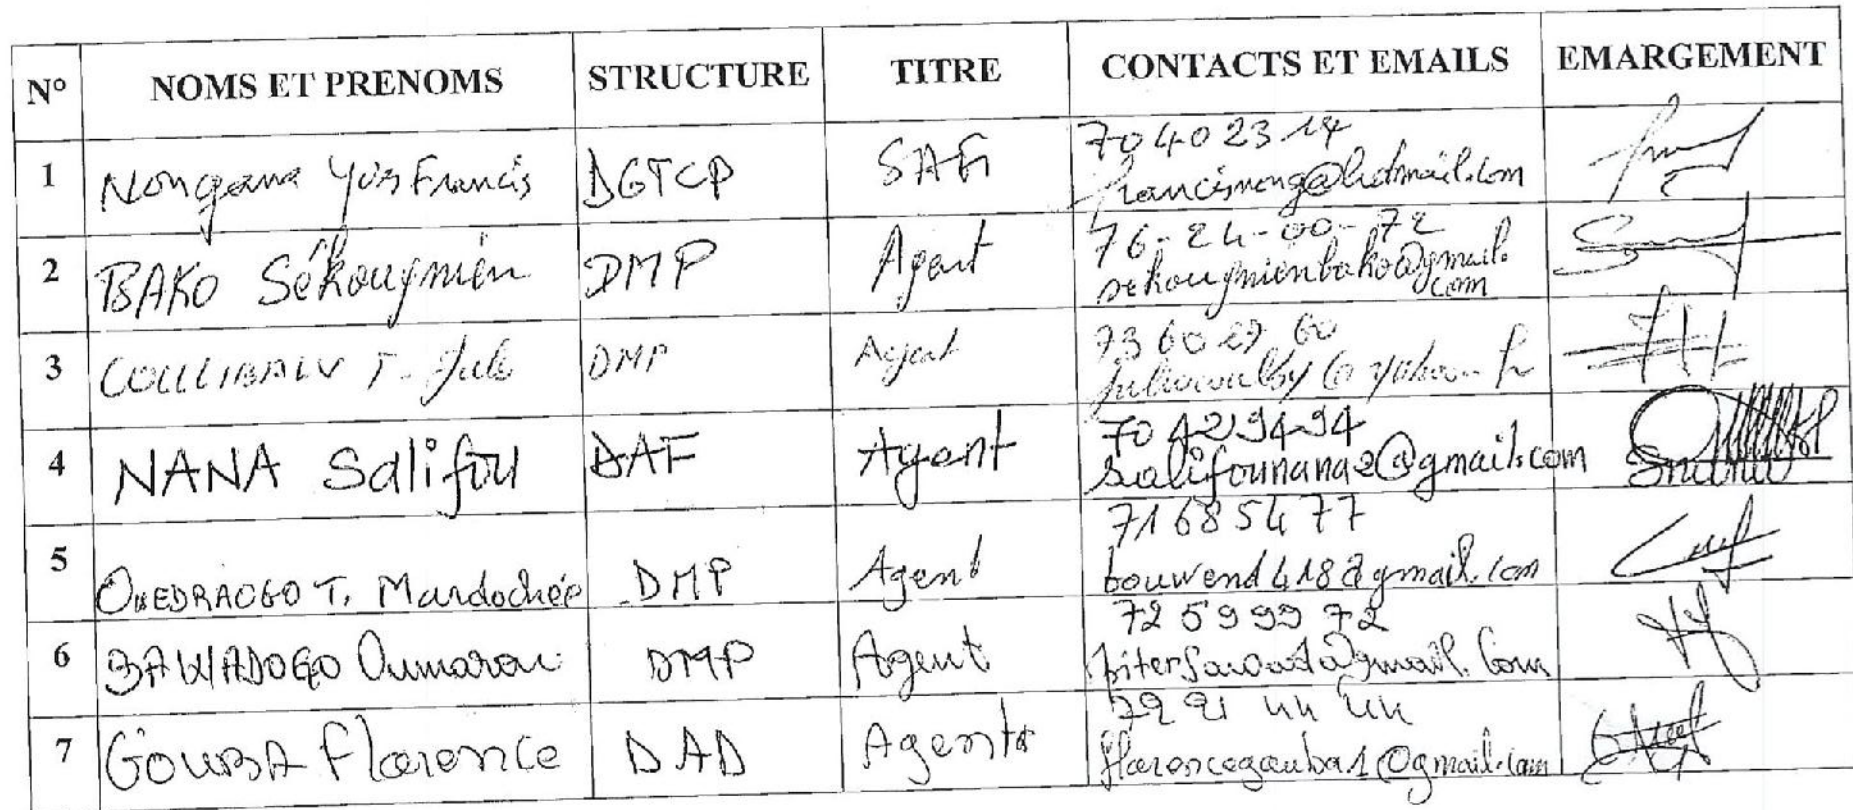 N° NOMS ET PRENOMS STRUCTURE TITRE CONTACTS ET EMAILS EMARGEMENT
1 Nongana Yves Francis DGTCP SAFi 70402314
francisnong@hotmail.com
2 BAKO Sékougnien DMP Agent 76-24-00-72
sekougnienbako@gmail.
com
3 COULIBALY T. DMP Agent 73 60 27 60
4 NANA Salifou DAF Agent 70429494
salifounana2@gmail.com
5 OUEDRAOGO T. Mardochée DMP Agent 71685477
bouwend418@gmail.com
6 SAWADOGO Oumarou DMP Agent 72 59 99 72
7 GOUBA Florence DAD Agente 72 21 44 44
florencegouba1@gmail.com